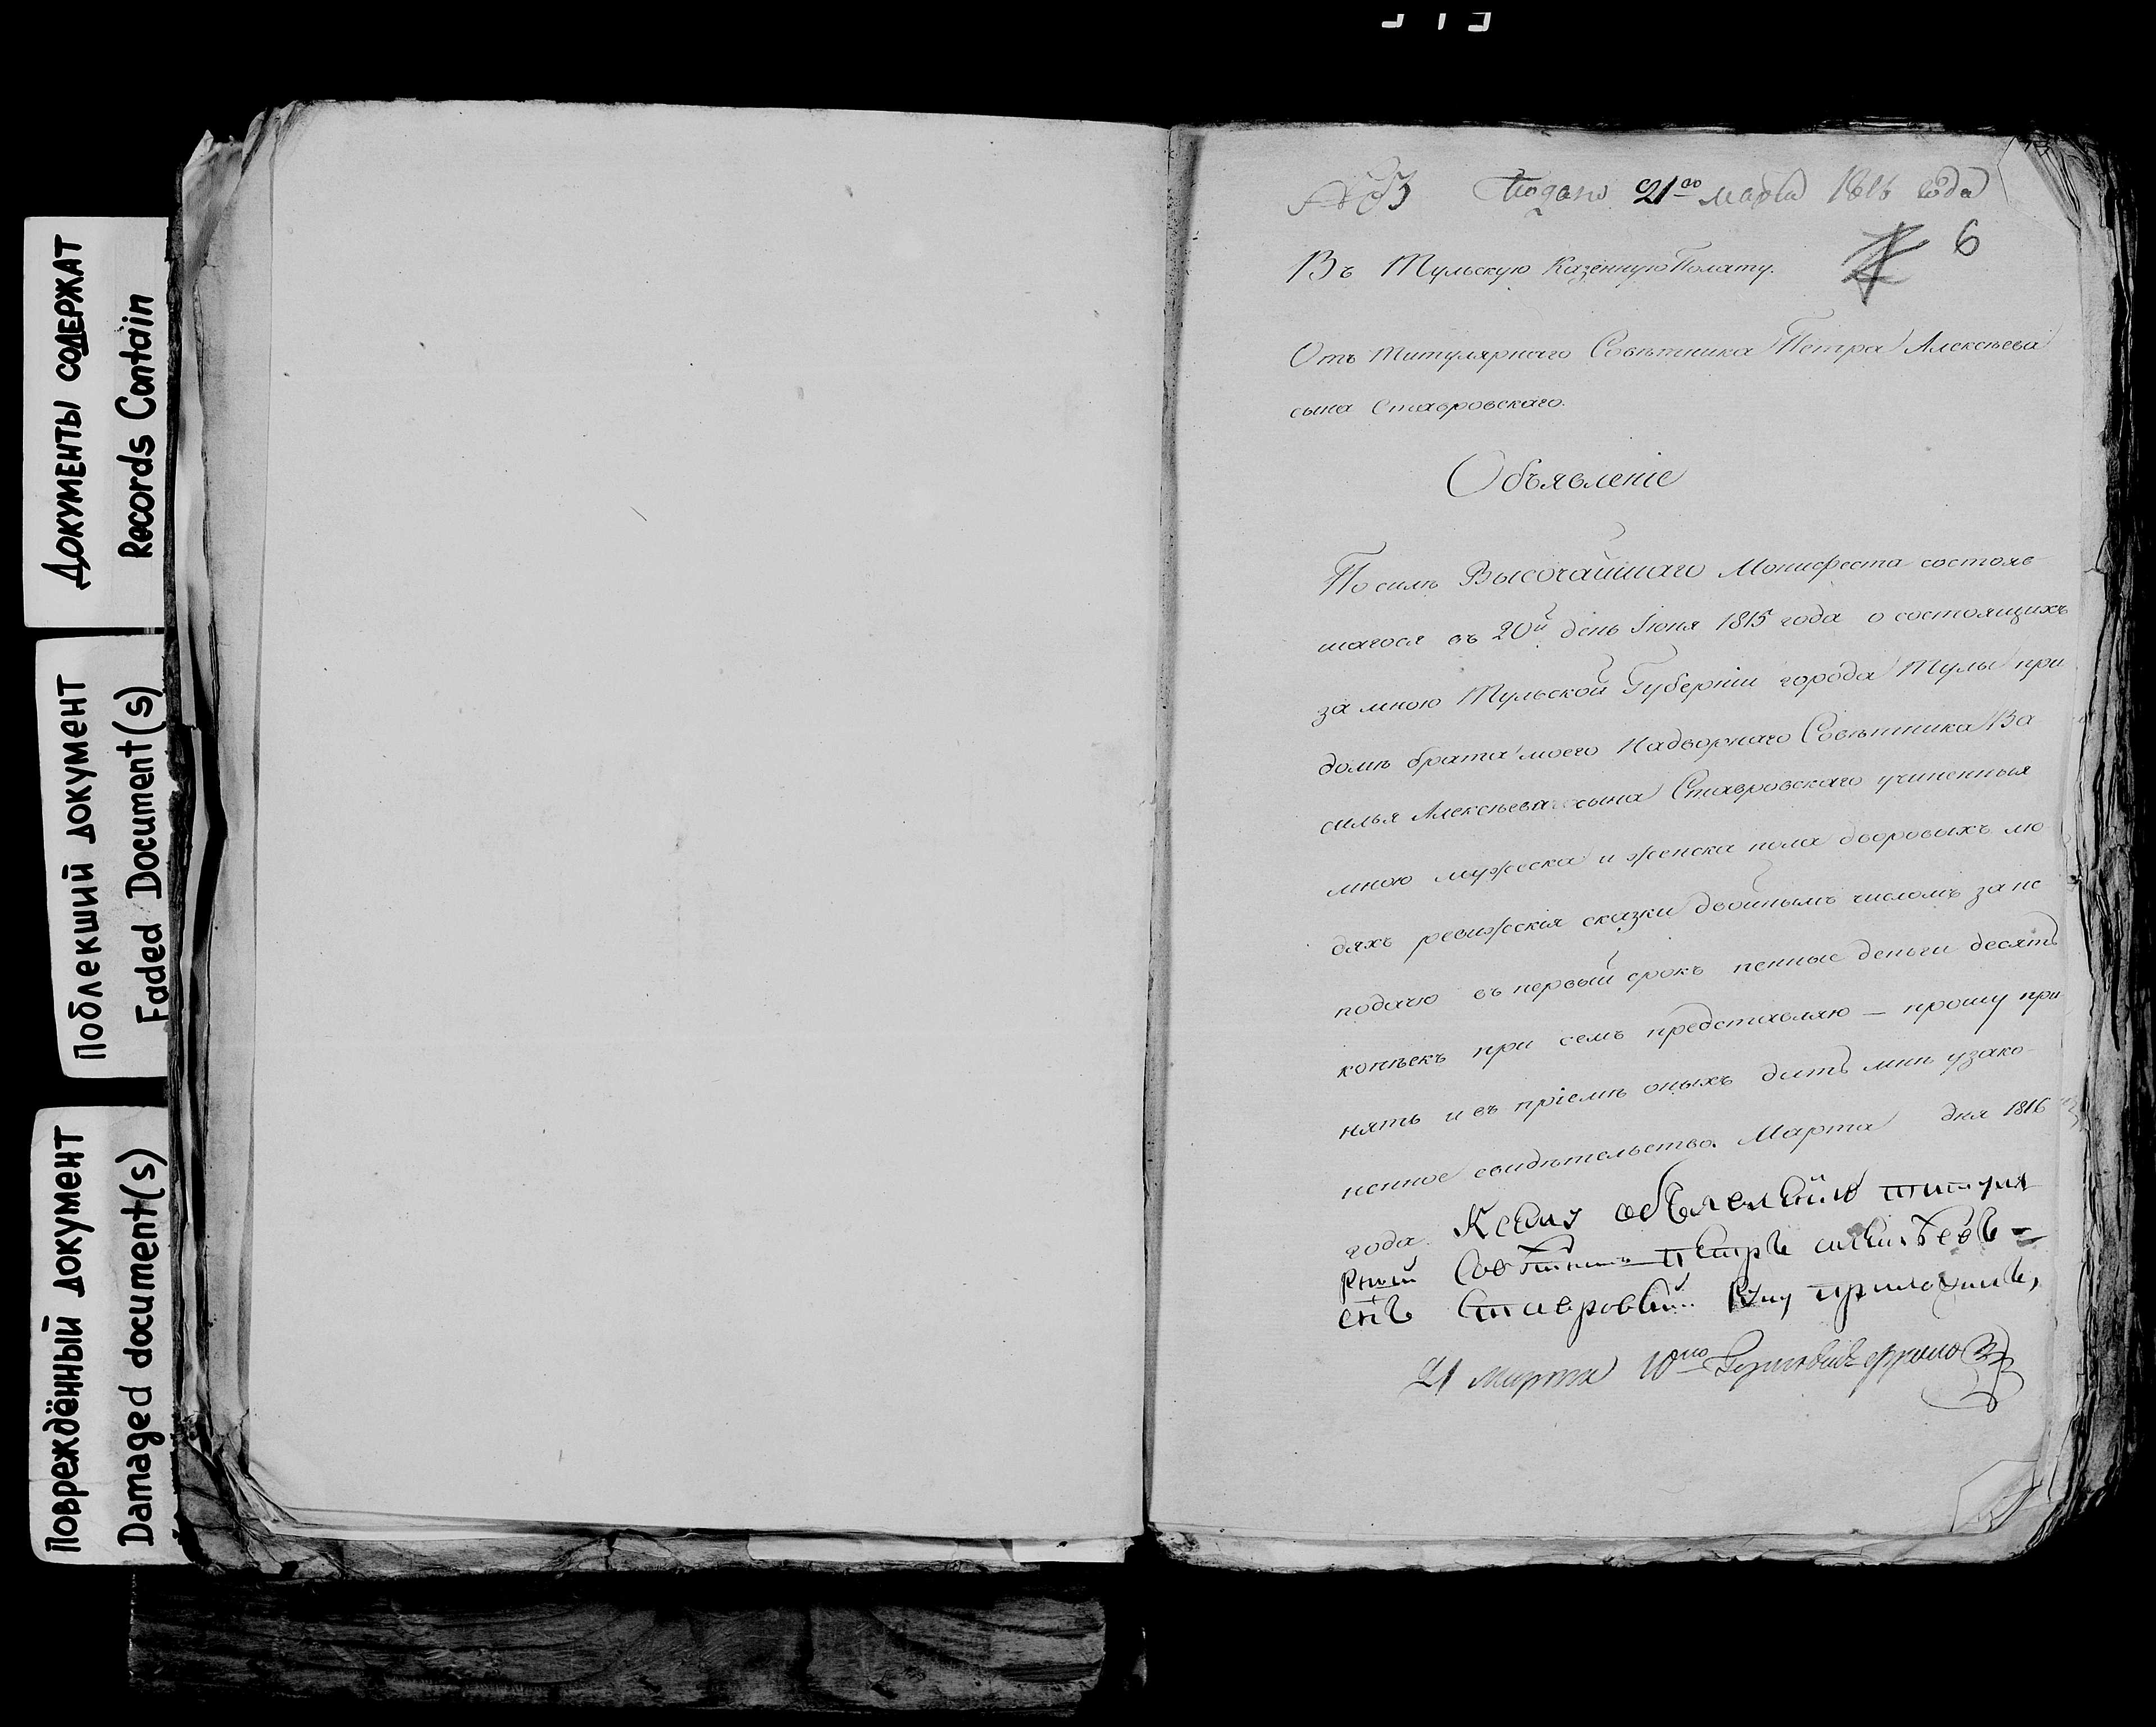 Документы содержат
Records Contain
Поблекший документ
Faded Document(s)
Повреждённый документ
Damaged document(s)
Подано 21го марта 1816 года
6
Въ Тульскую Казенную Полату.
Отъ титулярнаго Совѣтника Петра Алексѣева
сына Ставровскаго.
Объявленіе
По силѣ Высочайшаго Монифеста состояв
шагося въ 20й день Іюня 1815 года о состоящихъ
за мною Тульской Губерніи города Тулы при
домѣ брата моего Надворнаго Совѣтника Ва
силья Алексѣева сына Ставровскаго учиненныя
мною мужеска и женска пола дворовыхъ лю
дяхъ ревижскія сказки двойнымъ числомъ за не
подачю въ первый срокъ пенные деньги десять
копѣекъ при семъ представляю — прошу при
нять и въ пріемѣ оныхъ дать мнѣ узако
ненное свидѣтельство. Марта дня 1816
года. Ксему объявлению титуля
рный Советникъ петръ алексѣевъ =
снъ Ставровский руку приложилъ,
21 Марта